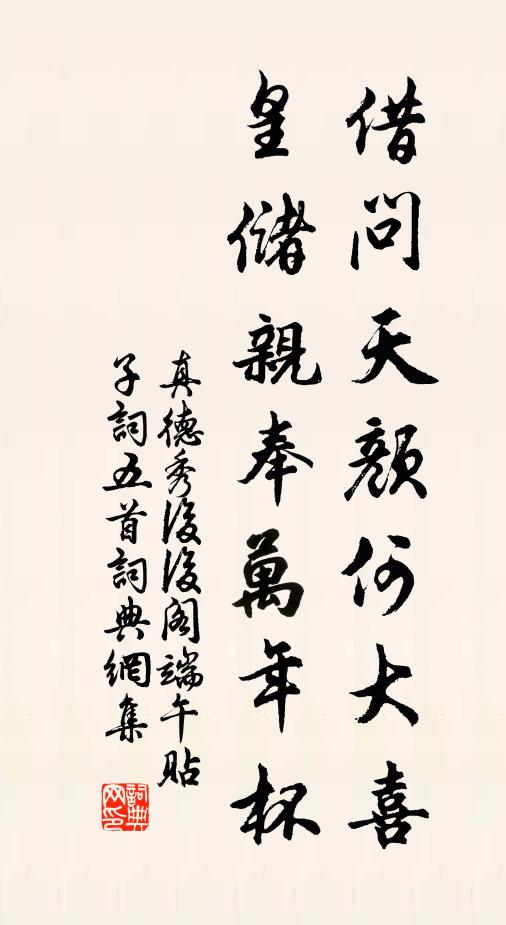 借問天顏何大喜
皇儲親奉萬年杯
真德秀後後閣端午貼
子詞五首詞典網集
詞典
网印